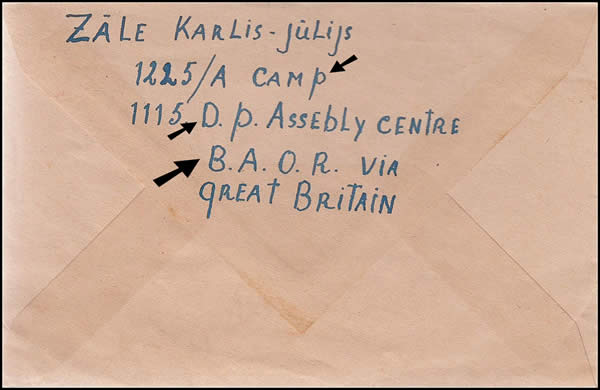 ZĀLE KARLIS-JŪLIJS
1225/A CAMP
1115 D.P. ASSEBLY CENTRE
B.A.O.R. VIA
GREAT BRITAIN